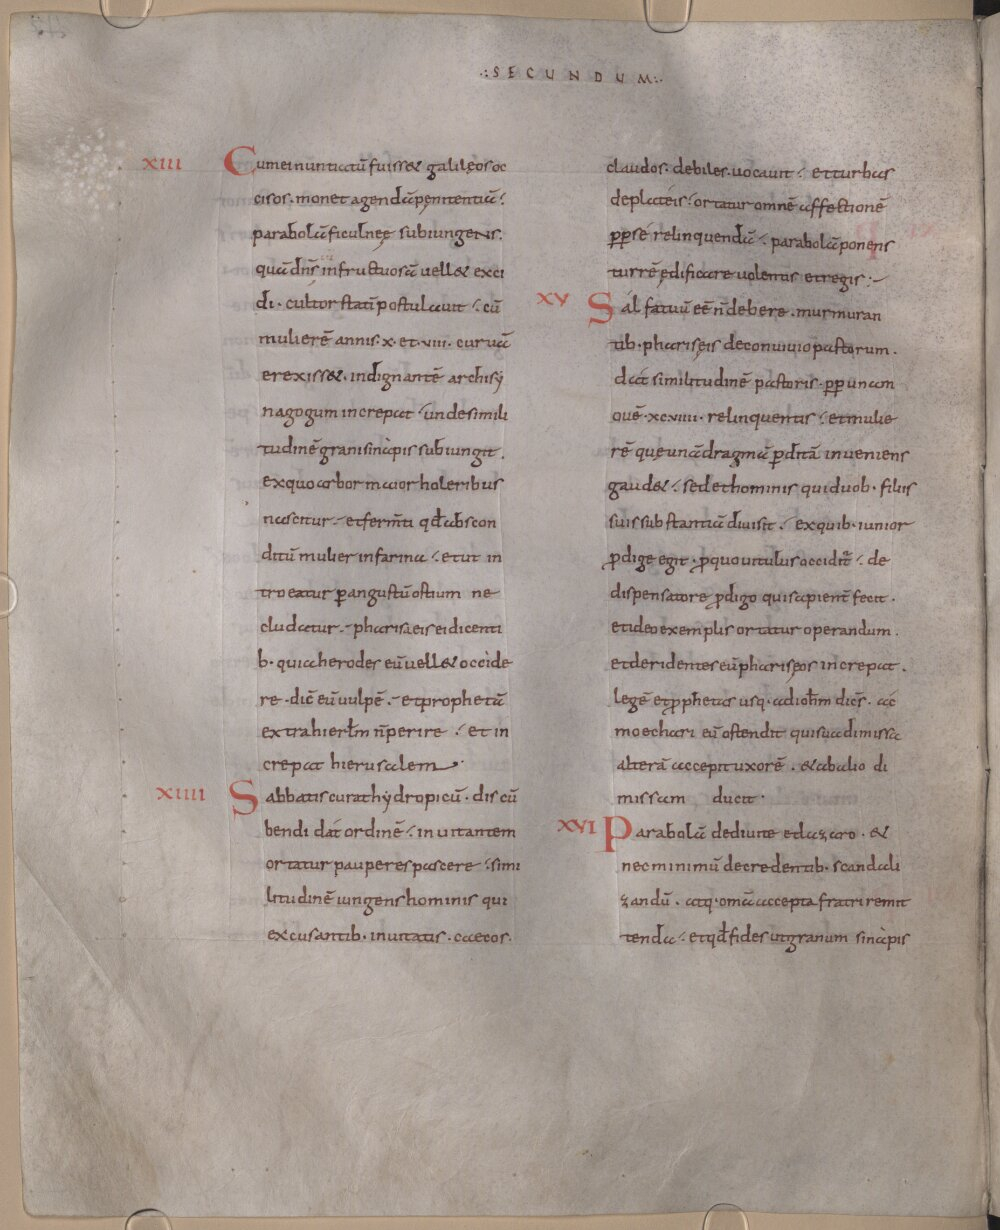 .:SECUNDUM:.
XIII Cum ei nuntiatũ fuiss& galilęos oc
cisos. monet agendã pęnitentiã:
parabolã ficulneę subiungens.
quã dn̄s infructuosã uell& exci
di. cultor statī postulauit: cũ
mulierē annis. x. et. viii. curuã
erexiss&. indignantē archisy
nagogum increpat: unde simili
tudinē grani sinapis subiungit.
ex quo arbor maior holeribus
nascitur: et ferm̄ti qđ abscon
ditũ mulier in farina: et ut in
troeatur ꝑ angustũ ostium ne
cludatur: phariseis ei dicenti
b. quia herodes eũ uell& occide
re. dič eũ uulpē: et prophetã
extra hierłm ñ perire: et in
crepat hierusalem
XIIII Sabbatis curat hydropicũ. discũ
bendi dat ordinē: inuitantem
ortatur pauperes pascere: simi
litudinē iungens hominis qui
excusantib. inuitatis. caecos.
claudos. debiles. uocauit: et turbas
de plateis: ortatur omnē affectionē
ꝓp se relinquendã: parabolã ponens
turrē ędificare uolentis et regis:
XV Sal fatuũ eē ñ debere. murmuran
tib. phariseis de conuiuio pastorum.
dat similitudinē pastoris. ꝓp unam
ouē. xcviiii. relinquentis: et mulie
rē que unã dragmã ꝑditã inueniens
gaud&: sed et hominis qui duob. filiis
suis substantiã diuisit: ex quib. iunior
ꝓdige egit. ꝓ quo uitulus occidit᷑: de
dispensatore ꝓdigo qui sapient᷑ fecit.
et ideo exemplis ortatur operandum.
et deridentes eũ phariseos increpat.
legē et ꝓphetas usq. ad iohm̄ dicēs. ac
moechari eũ ostendit qui sua dimissa
alterã accepit uxorē. & ab alio di
missam ducit.
XVI Parabolã de diuite et lazaro. &
nec minimũ de credentib. scandali
zandũ. atq. om̄a accepta fratri remit
tenda: et qđ fides ut granum sinapis